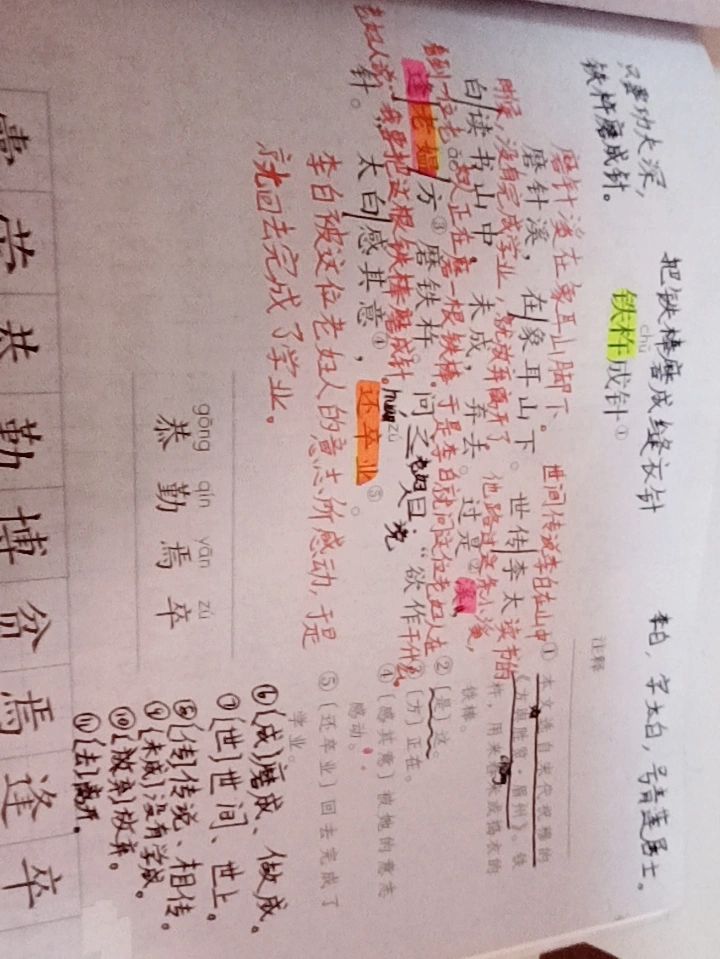 只要功夫深，
铁杵磨成针。
把铁棒磨成缝衣针
李白，字太白，号青莲居士。
chǔ
铁杵成针①
磨针溪在象耳山脚下。世间传说李白在山中
磨针溪，在象耳山下。世传李太
读书的
时候，没有完成学业，就放弃离开了。他路过这条小溪，
白读书山中，未成，弃去。过是②溪，
看到一位老妇正在磨一根铁棒。于是李白就问这位老妇人在
干什么。
逢老媪方③磨铁杵。问之，曰：“欲作
ǎo
老妇人说
老妇人说：我要把这根铁棒磨成针。
针。”太白感其意④，还卒业⑤。
huán zú
李白被这位老妇人的意志所感动，于是
就回去完成了学业。
注释
① 本文选自宋代祝穆的
《方舆胜览·眉州》。铁
杵，用来舂米或捣衣的
铁棒。
② 〔是〕这。
③ 〔方〕正在。
④ 〔感其意〕被她的意志
感动。
⑤ 〔还卒业〕回去完成了
学业。
⑥〔成〕磨成、做成。
⑦〔世〕世间、世上。
⑧〔传〕传说、相传。
⑨〔未成〕没有学成。
⑩〔弃〕放弃。
⑪〔去〕离开。
gōng qín yān zú
恭 勤 焉 卒
恭 勤 博 焉 逢 卒